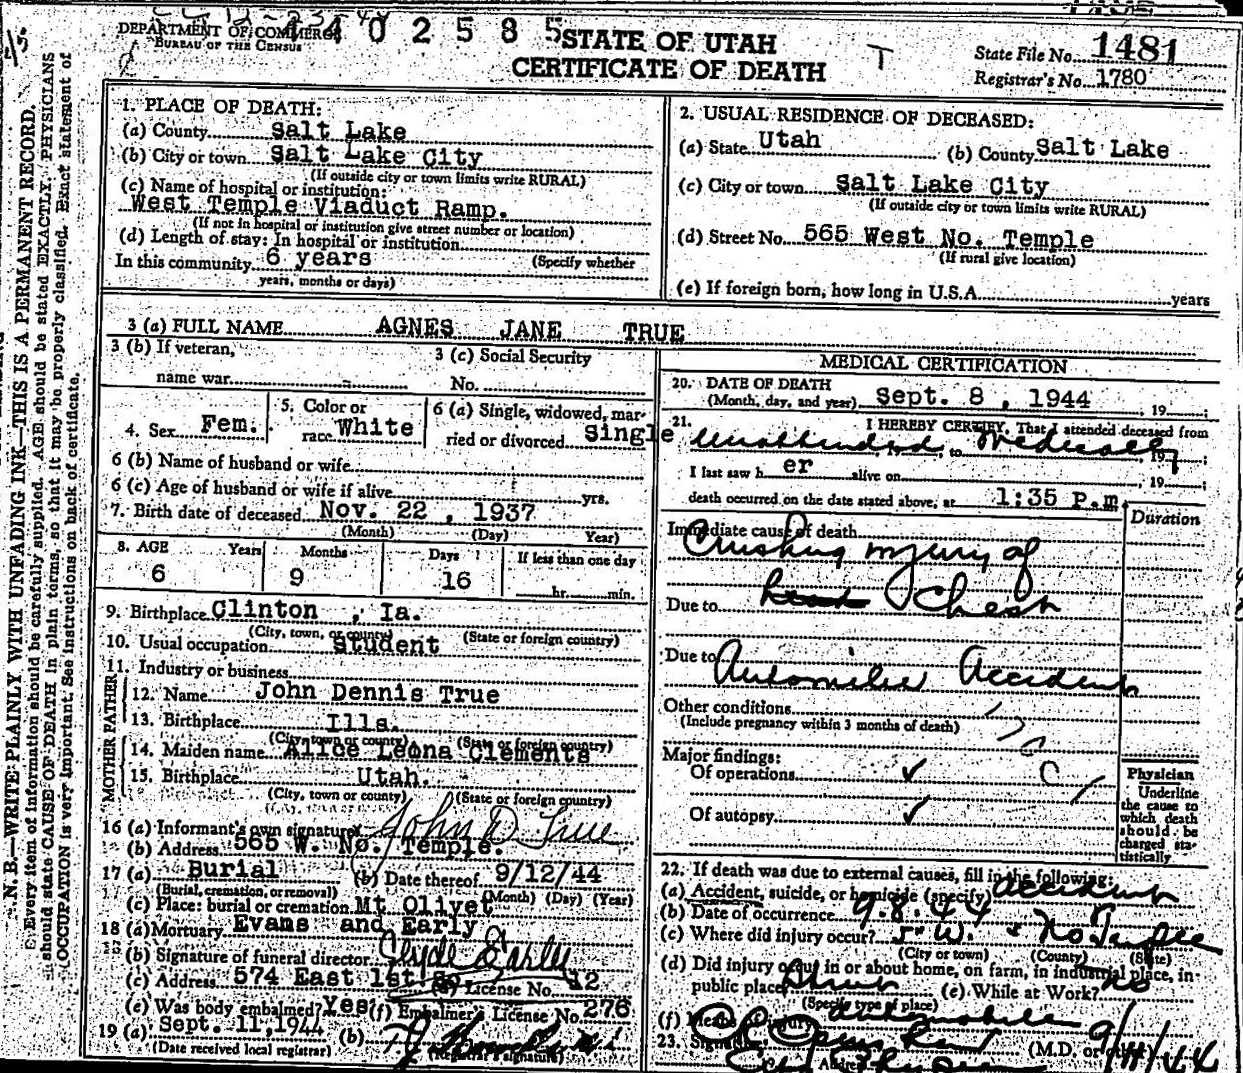 DEPARTMENT OF COMMERCE
BUREAU OF THE CENSUS
4402585
STATE OF UTAH
CERTIFICATE OF DEATH
T
State File No. 1481
Registrar's No. 1780
N. B.—WRITE PLAINLY WITH UNFADING INK—THIS IS A PERMANENT RECORD.
Every item of information should be carefully supplied. AGE should be stated EXACTLY. PHYSICIANS
should state CAUSE OF DEATH in plain terms, so that it may be properly classified. Exact statement of
OCCUPATION is very important. See instructions on back of certificate.
1. PLACE OF DEATH:
(a) County Salt Lake
(b) City or town Salt Lake City
(If outside city or town limits write RURAL)
(c) Name of hospital or institution:
West Temple Viaduct Ramp.
(If not in hospital or institution give street number or location)
(d) Length of stay: In hospital or institution
In this community 6 years (Specify whether
years, months or days)
2. USUAL RESIDENCE OF DECEASED:
(a) State Utah (b) County Salt Lake
(c) City or town Salt Lake City
(If outside city or town limits write RURAL)
(d) Street No. 565 West No. Temple
(If rural give location)
(e) If foreign born, how long in U.S.A. years
3 (a) FULL NAME AGNES JANE TRUE
3 (b) If veteran,
name war
3 (c) Social Security
No.
4. Sex Fem.
5. Color or
race White
6 (a) Single, widowed, mar-
ried or divorced Single
6 (b) Name of husband or wife
6 (c) Age of husband or wife if alive yrs.
7. Birth date of deceased Nov. 22, 1937
(Month) (Day) Year)
8. AGE Years Months Days If less than one day
6 9 16 hr. min.
9. Birthplace Clinton, Ia.
(City, town, or county) (State or foreign country)
10. Usual occupation Student
11. Industry or business
FATHER
12. Name John Dennis True
13. Birthplace Ills.
(City, town or county) (State or foreign country)
MOTHER
14. Maiden name Alice Leona Clements
15. Birthplace Utah.
(City, town or county) (State or foreign country)
16 (a) Informant's own signature John D True
(b) Address 565 W. No. Temple.
17 (a) Burial (b) Date thereof 9/12/44
(Burial, cremation, or removal) (Month) (Day) (Year)
(c) Place: burial or cremation Mt Olivet
18 (a) Mortuary Evans and Early
(b) Signature of funeral director Clyde Early
(c) Address 574 East 1st So License No. 12
(e) Was body embalmed? Yes (f) Embalmer's License No. 276
19 (a) Sept. 11, 1944 (b)
(Date received local registrar) (Registrar's signature)
MEDICAL CERTIFICATION
20. DATE OF DEATH
(Month, day, and year) Sept. 8, 1944, 19
21. I HEREBY CERTIFY, That I attended deceased from
Unattended, 19 to Medically, 19
I last saw h er alive on , 19
death occurred on the date stated above, at 1:35 P.m.
Duration
Immediate cause of death
Crushing injury of
Due to head Chest
Due to Automobile Accident
Other conditions
(Include pregnancy within 3 months of death)
170 C
Major findings:
Of operations ✓
Of autopsy ✓
Physician
Underline
the cause to
which death
should be
charged sta-
tistically
22. If death was due to external causes, fill in the following:
(a) Accident, suicide, or homicide (specify) accident
(b) Date of occurrence 9-8-44
(c) Where did injury occur? 5" W. & No Temple
(City or town) (County) (State)
(d) Did injury occur in or about home, on farm, in industrial place, in
public place? Street (e) While at Work? No
(Specify type of place)
(f) Means of injury automobile
23. Signature (M.D. or other) 9/11/44
Address